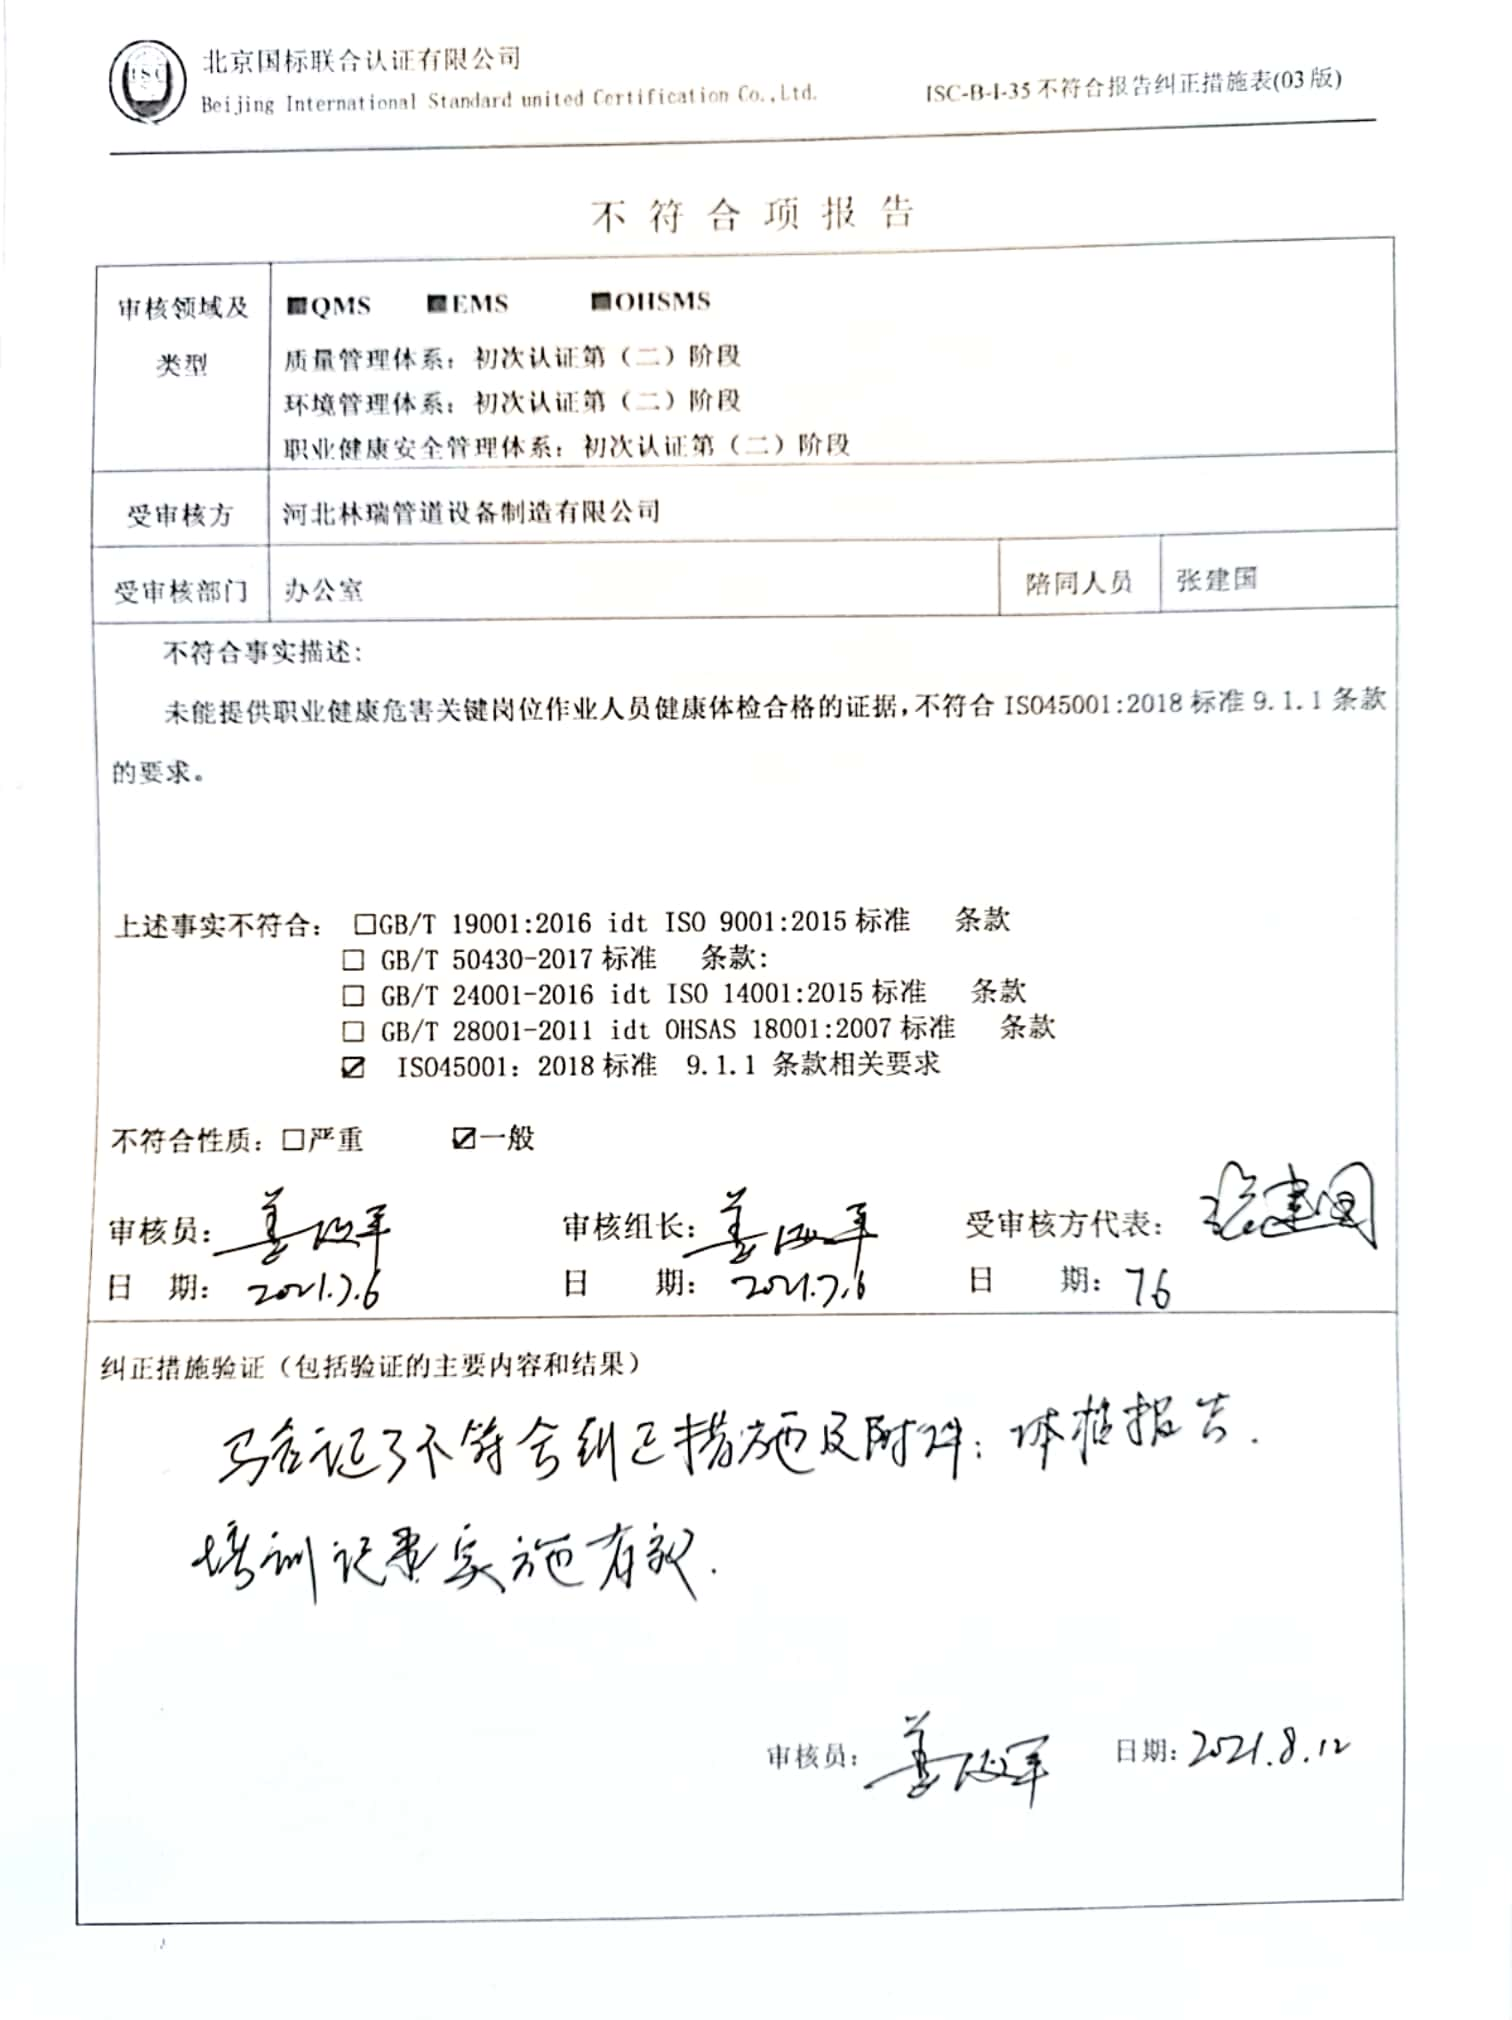 ISC
北京国标联合认证有限公司
Beijing International Standard united Certification Co.,Ltd.
ISC-B-I-35 不符合报告纠正措施表(03 版)
不符合项报告
审核领域及类型
■QMS ■EMS ■OHSMS
质量管理体系：初次认证第（二）阶段
环境管理体系：初次认证第（二）阶段
职业健康安全管理体系：初次认证第（二）阶段
受审核方 河北林瑞管道设备制造有限公司
受审核部门 办公室 陪同人员 张建国
不符合事实描述：
未能提供职业健康危害关键岗位作业人员健康体检合格的证据，不符合 ISO45001:2018 标准 9.1.1 条款
的要求。
上述事实不符合： □GB/T 19001:2016 idt ISO 9001:2015 标准 条款
□ GB/T 50430-2017 标准 条款：
□ GB/T 24001-2016 idt ISO 14001:2015 标准 条款
□ GB/T 28001-2011 idt OHSAS 18001:2007 标准 条款
☑ ISO45001：2018 标准 9.1.1 条款相关要求
不符合性质：□严重 ☑一般
审核员： 审核组长： 受审核方代表：张建国
日 期：2021.7.6 日 期：2021.7.6 日 期：7.6
纠正措施验证（包括验证的主要内容和结果）
了不符合纠正措施及附件：体检报告.
培训记录实施有效.
审核员： 日期：2021.8.12